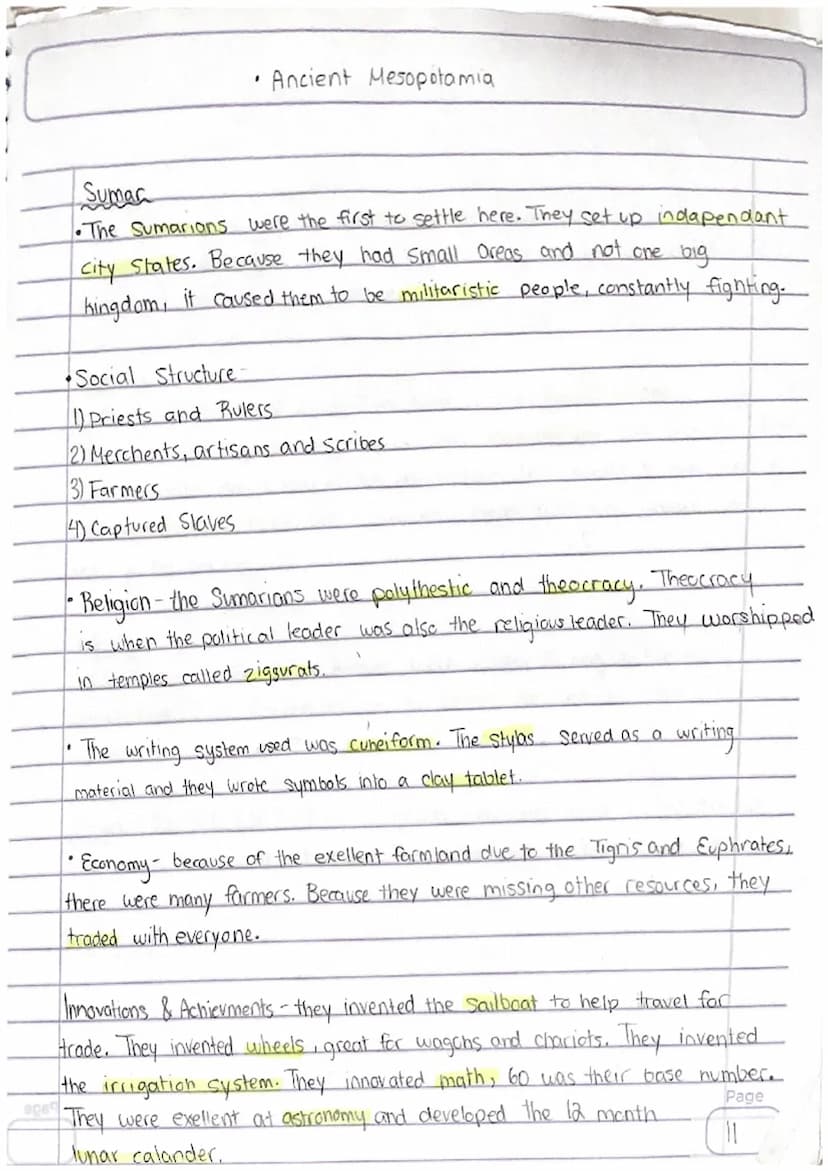 • Ancient Mesopotamia
Sumac
• The Sumarions were the first to settle here. They set up indapendant
city States. Because they had small areas and not one big
kingdom, it caused them to be militaristic people, constantly fighting.
• Social Structure-
1) Priests and Rulers
2) Merchents, artisans and scribes
3) Farmers
4) Captured Slaves
• Religion - the Sumarians were polythestic and theocracy. Theocracy
is when the political leader was also the religious leader. They worshipped
in temples called ziggurats.
• The writing system used was cuneiform. The stylas served as a writing
material and they wrote symbols into a clay tablet.
• Economy - because of the exellent farmland due to the Tigris and Euphrates,
there were many farmers. Because they were missing other resources, they
traded with everyone.
Innovations & Achievments - they invented the sailboat to help travel for
trade. They invented wheels, great for wagons and chariots. They invented
the irrigation system. They innovated math, 60 was their base number.
They were exellent at astronomy and developed the 12 month
lunar calander.
Page
11